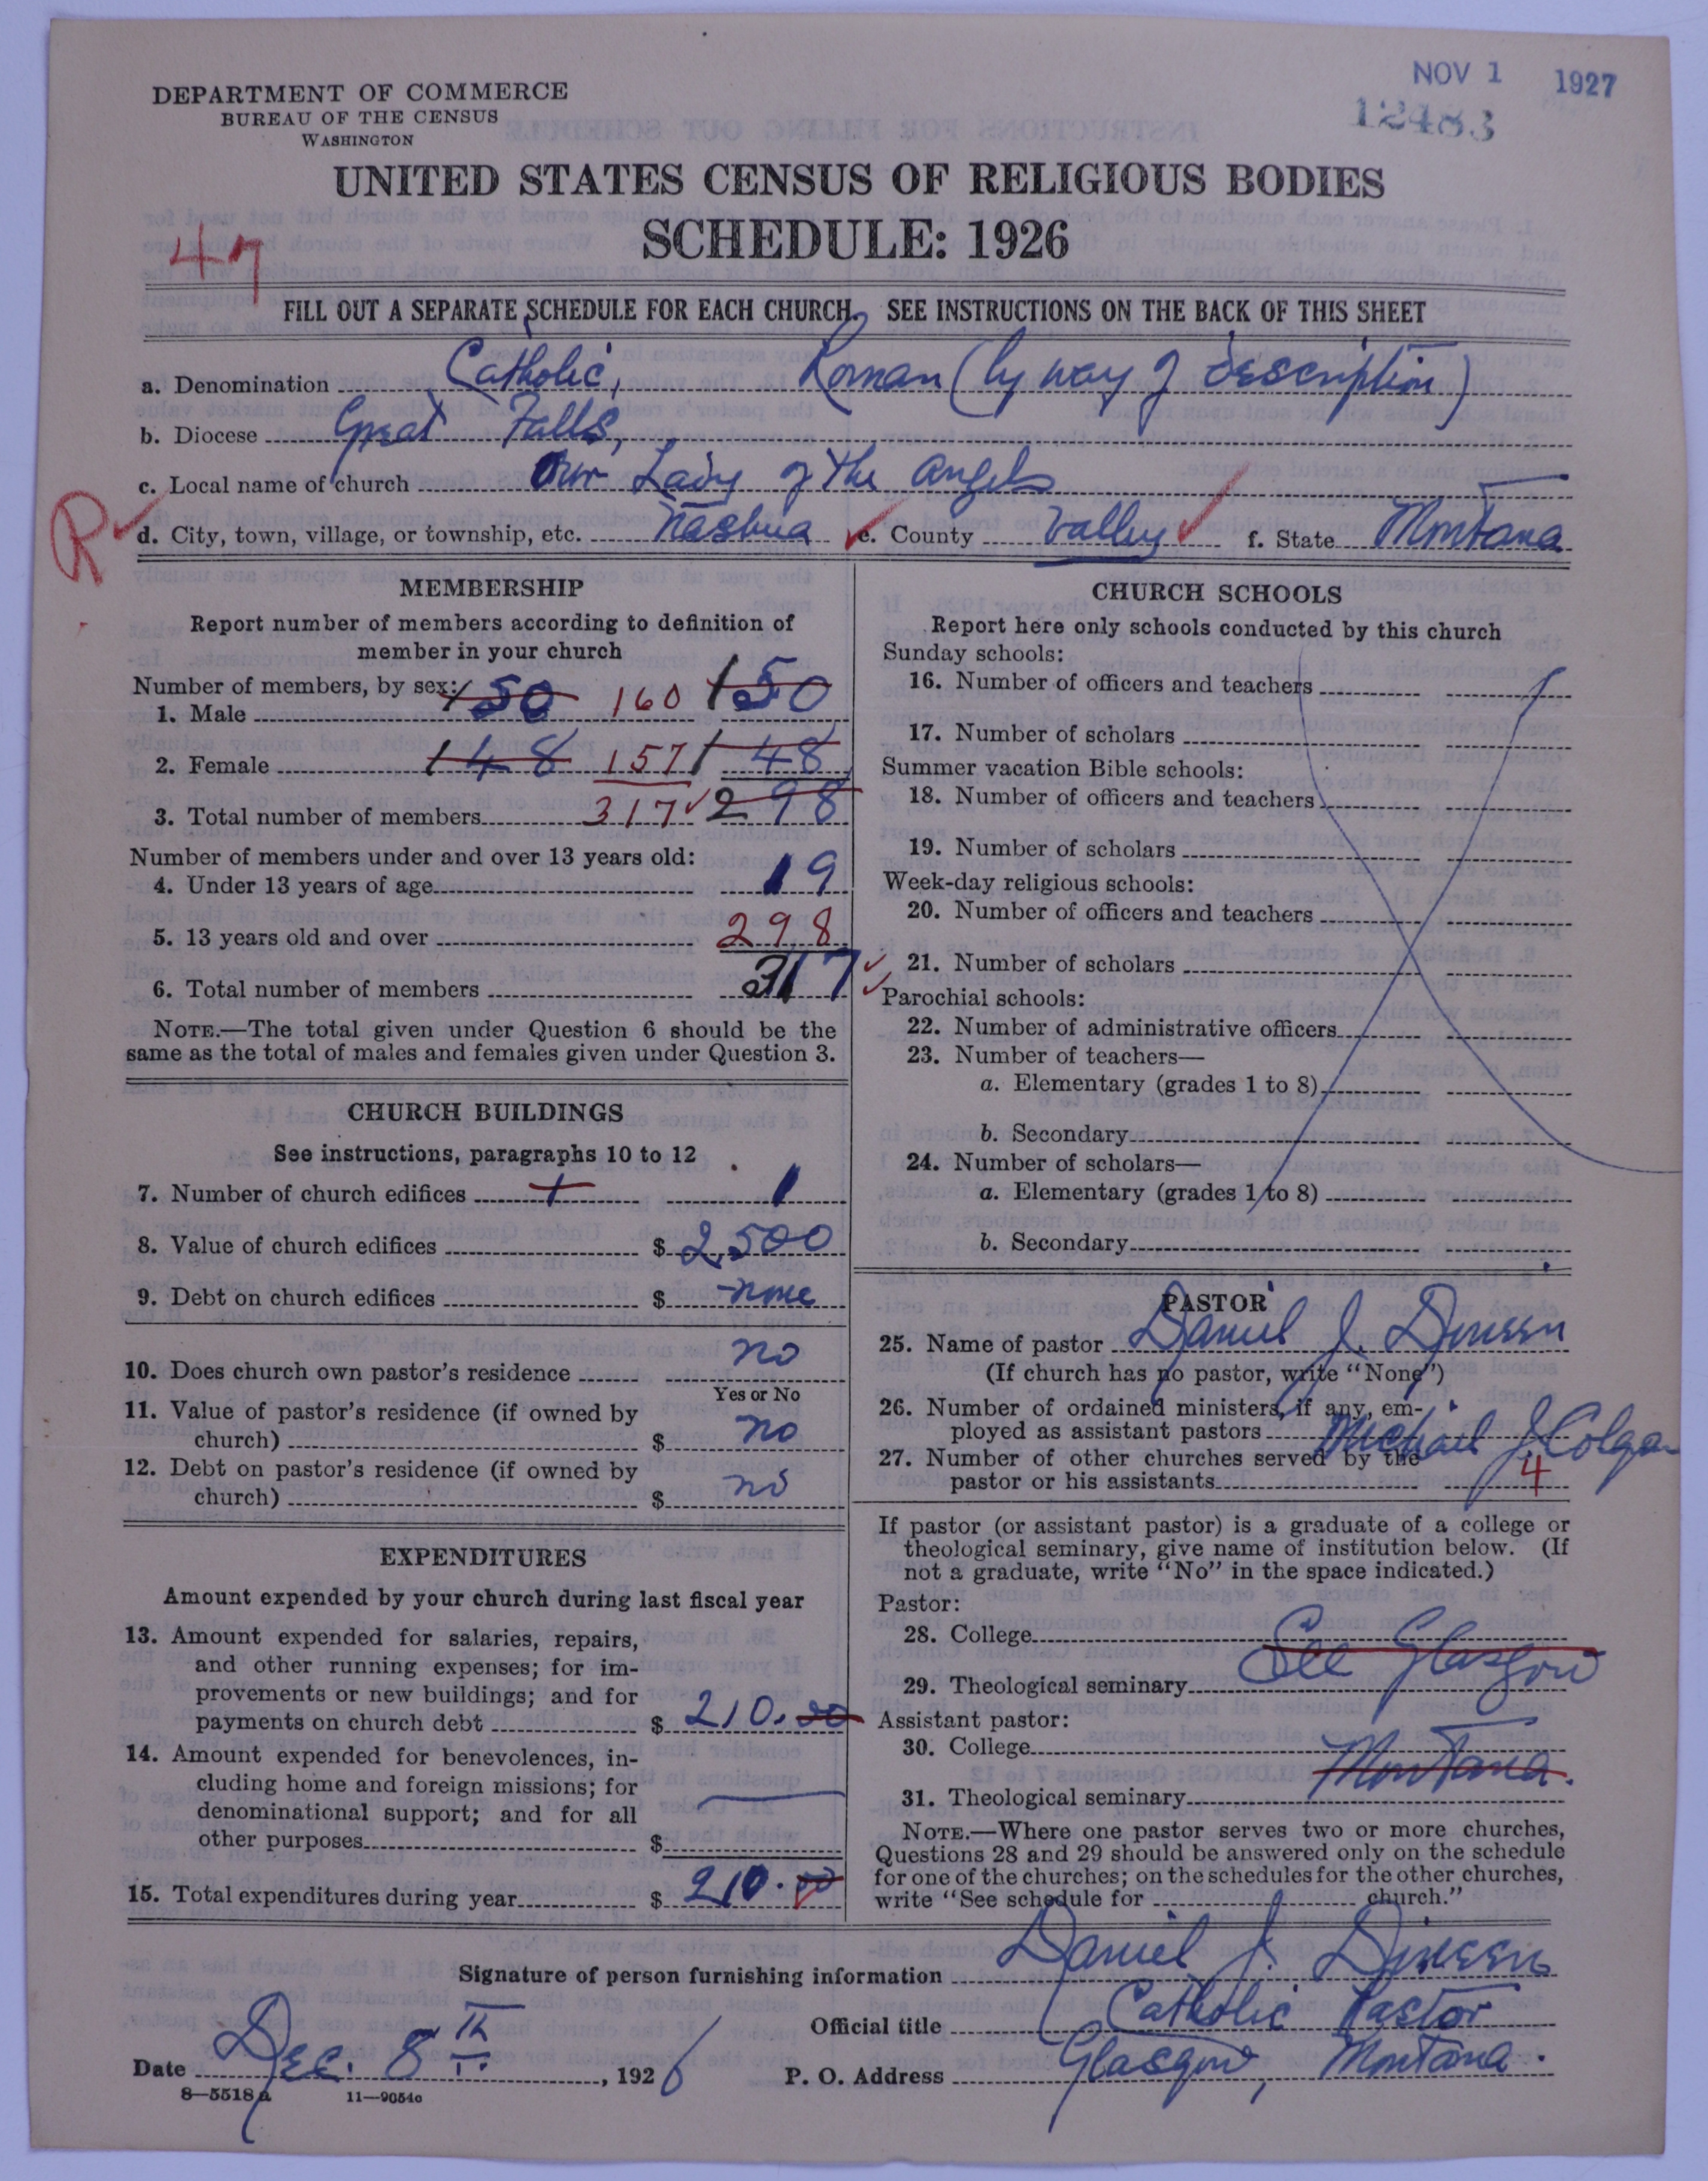 NOV 1 1927
12483
DEPARTMENT OF COMMERCE
BUREAU OF THE CENSUS
WASHINGTON
UNITED STATES CENSUS OF RELIGIOUS BODIES
SCHEDULE: 1926
47
FILL OUT A SEPARATE SCHEDULE FOR EACH CHURCH. SEE INSTRUCTIONS ON THE BACK OF THIS SHEET
a. Denomination Catholic, Roman (by way of description)
b. Diocese Great Falls,
c. Local name of church Our Lady of the Angels
R
d. City, town, village, or township, etc. Nashua e. County Valley f. State Montana
MEMBERSHIP
Report number of members according to definition of
member in your church
Number of members, by sex:
1. Male 150 160 150
2. Female 148 157 148
3. Total number of members 317 298
Number of members under and over 13 years old:
4. Under 13 years of age 19
5. 13 years old and over 298
6. Total number of members 317
NOTE.—The total given under Question 6 should be the
same as the total of males and females given under Question 3.
CHURCH BUILDINGS
See instructions, paragraphs 10 to 12
7. Number of church edifices 1 1
8. Value of church edifices $ 2,500
9. Debt on church edifices $ none
10. Does church own pastor's residence no
Yes or No
11. Value of pastor's residence (if owned by
church) $ no
12. Debt on pastor's residence (if owned by
church) $ no
EXPENDITURES
Amount expended by your church during last fiscal year
13. Amount expended for salaries, repairs,
and other running expenses; for im-
provements or new buildings; and for
payments on church debt $ 210.00
14. Amount expended for benevolences, in-
cluding home and foreign missions; for
denominational support; and for all
other purposes $
15. Total expenditures during year $ 210.00
CHURCH SCHOOLS
Report here only schools conducted by this church
Sunday schools:
16. Number of officers and teachers
17. Number of scholars
Summer vacation Bible schools:
18. Number of officers and teachers
19. Number of scholars
Week-day religious schools:
20. Number of officers and teachers
21. Number of scholars
Parochial schools:
22. Number of administrative officers
23. Number of teachers—
a. Elementary (grades 1 to 8)
b. Secondary
24. Number of scholars—
a. Elementary (grades 1 to 8)
b. Secondary
PASTOR
25. Name of pastor Daniel J. Dineen
(If church has no pastor, write "None")
26. Number of ordained ministers, if any, em-
ployed as assistant pastors Michael J. Colgan
27. Number of other churches served by the
pastor or his assistants 4
If pastor (or assistant pastor) is a graduate of a college or
theological seminary, give name of institution below. (If
not a graduate, write "No" in the space indicated.)
Pastor:
28. College
See Glasgow
29. Theological seminary
Assistant pastor:
30. College
Montana.
31. Theological seminary
NOTE.—Where one pastor serves two or more churches,
Questions 28 and 29 should be answered only on the schedule
for one of the churches; on the schedules for the other churches,
write "See schedule for church."
Signature of person furnishing information Daniel J. Dineen
Official title Catholic Pastor
Date Dec. 8th, 1926 P. O. Address Glasgow, Montana.
8—5518a 11—9054c